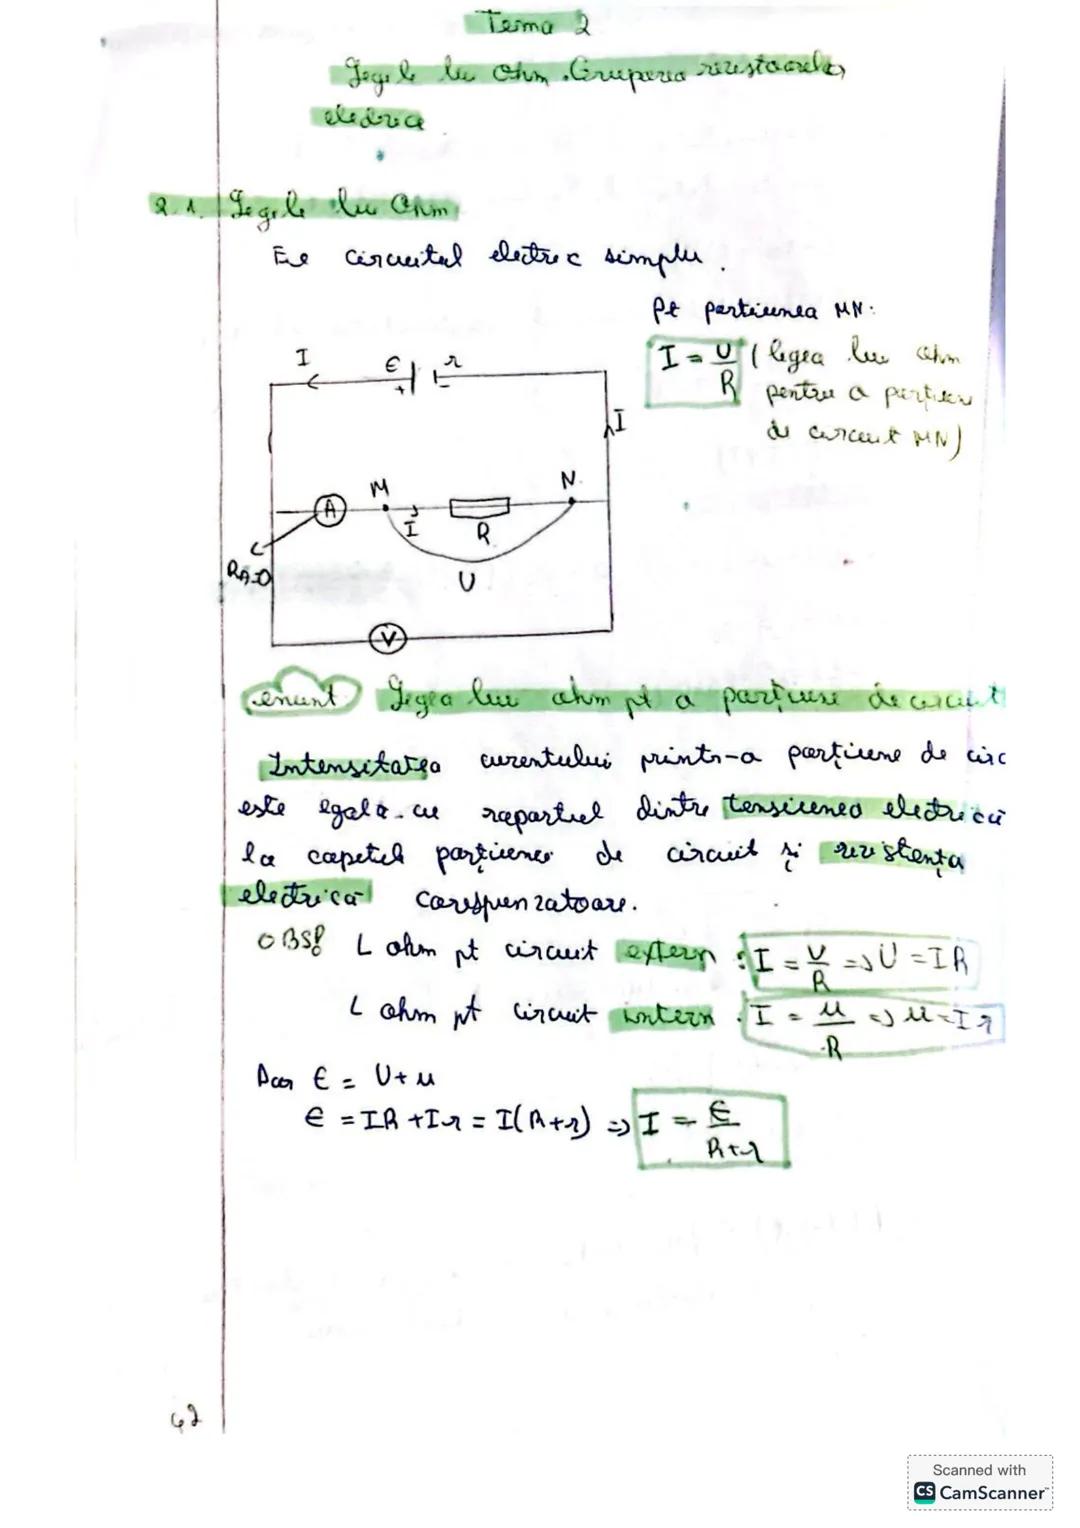 Tema 2
Legile lui Ohm. Gruparea rezistoarelor
electrice
2.1. Legile lui Ohm
Fie circuitul electric simplu.
Pt porțiunea MN:
I = U/R (legea lui Ohm
pentru o porțiune
de circuit MN)
I
ε
r
+
-
I
A
M
I
R
N
RA=0
U
V
enunț Legea lui Ohm pt o porțiune de circuit
Intensitatea curentului printr-o porțiune de circ
este egală cu raportul dintre tensiunea electrică
la capetele porțiunii de circuit și rezistența
electrică corespunzătoare.
OBS! L Ohm pt circuit extern : I = U/R => U = IR
L Ohm pt circuit intern : I = u/R => u = Ir
Dar ε = U + u
ε = IR + Ir = I(R+r) => I = ε/R+r
Scanned with
CS CamScanner